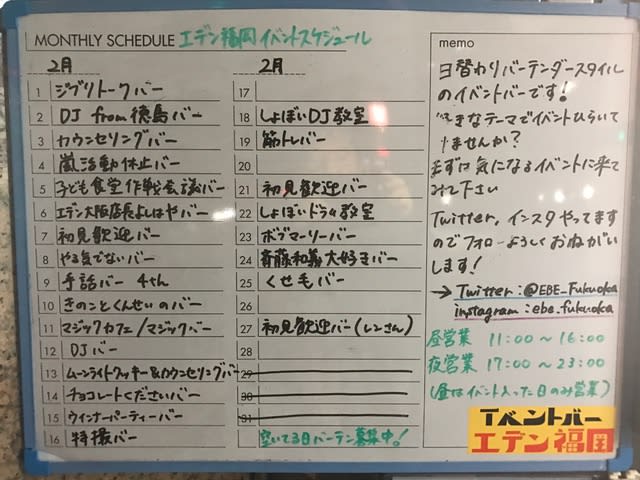 MONTHLY SCHEDULE エデン福岡イベントスケジュール
2月
1 ジブリトークバー
2 DJ from 徳島バー
3 カウンセリングバー
4 嵐活動休止バー
5 子ども食堂作戦会議バー
6 エデン大阪店長よしはやバー
7 初見歓迎バー
8 やる気でないバー
9 手話バー
10 きのことくんせいのバー
11 マジックカフェ/マジックバー
12 DJバー
13 ムーンライトクッキー&カウンセリングバー
14 チョコレートくださいバー
15 ウィンナーパーティーバー
16 特撮バー
2月
17
18 しょぼいDJ教室
19 筋トレバー
20
21 初見歓迎バー
22 しょぼいドラム教室
23 ボブマーリーバー
24 斉藤和義大好きバー
25 くせ毛バー
26
27 初見歓迎バー(レンさん)
28
29
30
31
空いてる日バーテン募集中!
memo
日替わりバーテンダースタイル
のイベントバーです!
きなテーマでイベントひらいて
ませんか?
まずは気になるイベントに来て
みて下さい
Twitter,インスタやってます
のでフォローよろしくおねがい
します!
→Twitter:@EBE_Fukuoka
instagram:ebe.fukuoka
昼営業 11:00～16:00
夜営業 17:00～23:00
(昼はイベント入った日のみ営業)
イベントバー
エデン福岡